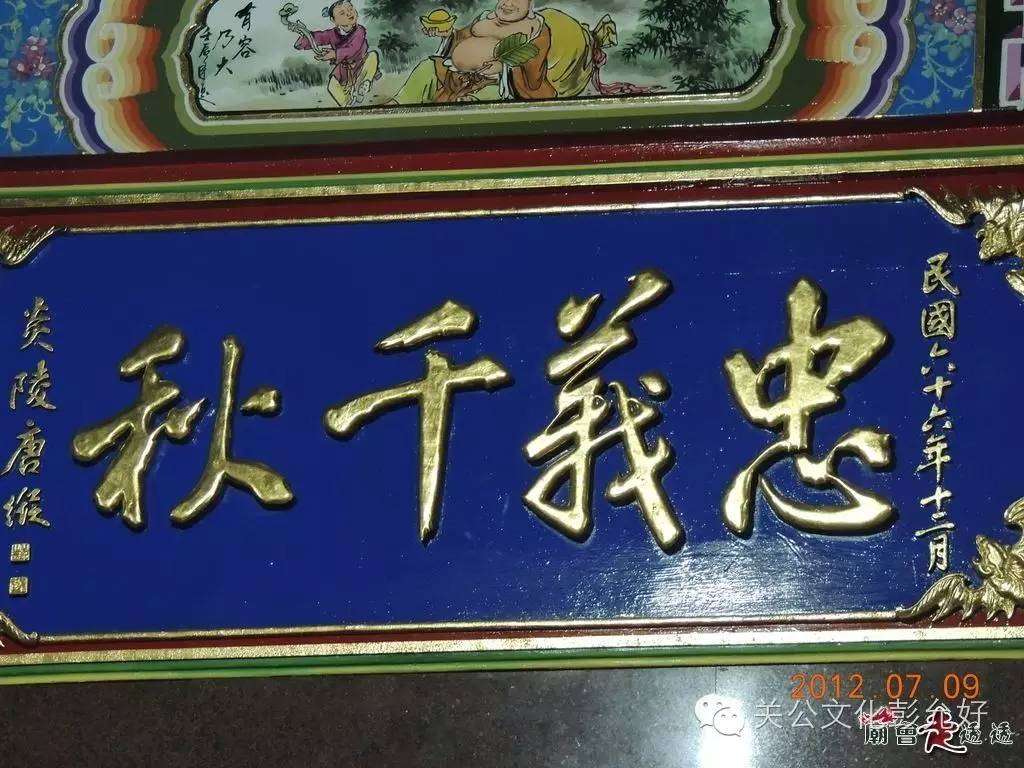 有容
乃大
忠義千秋
民國六十六年十二月
炎陵唐縱
2012.07.09
关公文化彭允好
廟會走透透